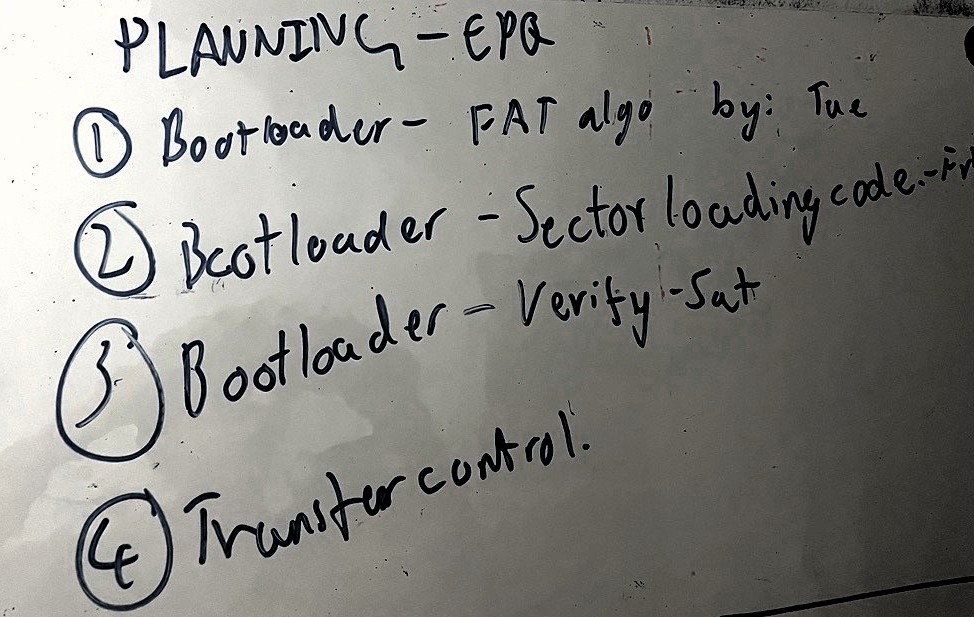 PLANNING - EPQ
① Bootloader - FAT algo by: Tue
② Bootloader - Sector loading code:- Fr
③ Bootloader - Verify - Sat
④ Transfer control.